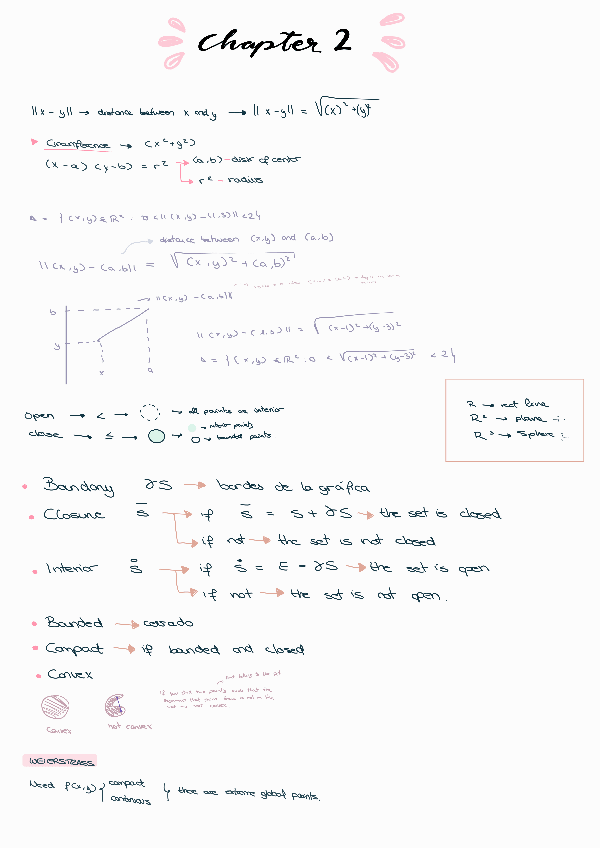 Chapter 2
||x - y|| → distance between x and y → ||x - y|| = √(x)² + (y)²
Circumference → (x² + y²)
(x - a) (y - b) = r² → (a, b) - desir of center
→ r² - radius
A = { (x, y) ∈ R² . 0 < ||(x, y) - (1, 3)|| < 2}
→ distance between (x, y) and (a, b)
||(x, y) - (a, b)|| = √(x, y)² + (a, b)²
→ ||(x, y) - (a, b)||
b
y
x a
||(x, y) - (1, 3)|| = √(x-1)² + (y-3)²
A = { (x, y) ∈ R² . 0 < √(x-1)² + (y-3)² < 2}
open → < → → all points are interior
close → ≤ → → interior points
→ bounded points
R → rect line
R² → plane
R³ → Sphere
Boundary ∂S → bordes de la gráfica
Closure S̄ → if S̄ = S + ∂S → the set is closed
→ if not → the set is not closed
Interior S̊ → if S̊ = E - ∂S → the set is open
→ if not → the set is not open.
Banded → cerrado
Compact → if banded and closed
Convex
if you are two points and that the
Convex
not convex
WEIERSTRASS
Need f(x, y) { compact
continuous } there are extreme global points.